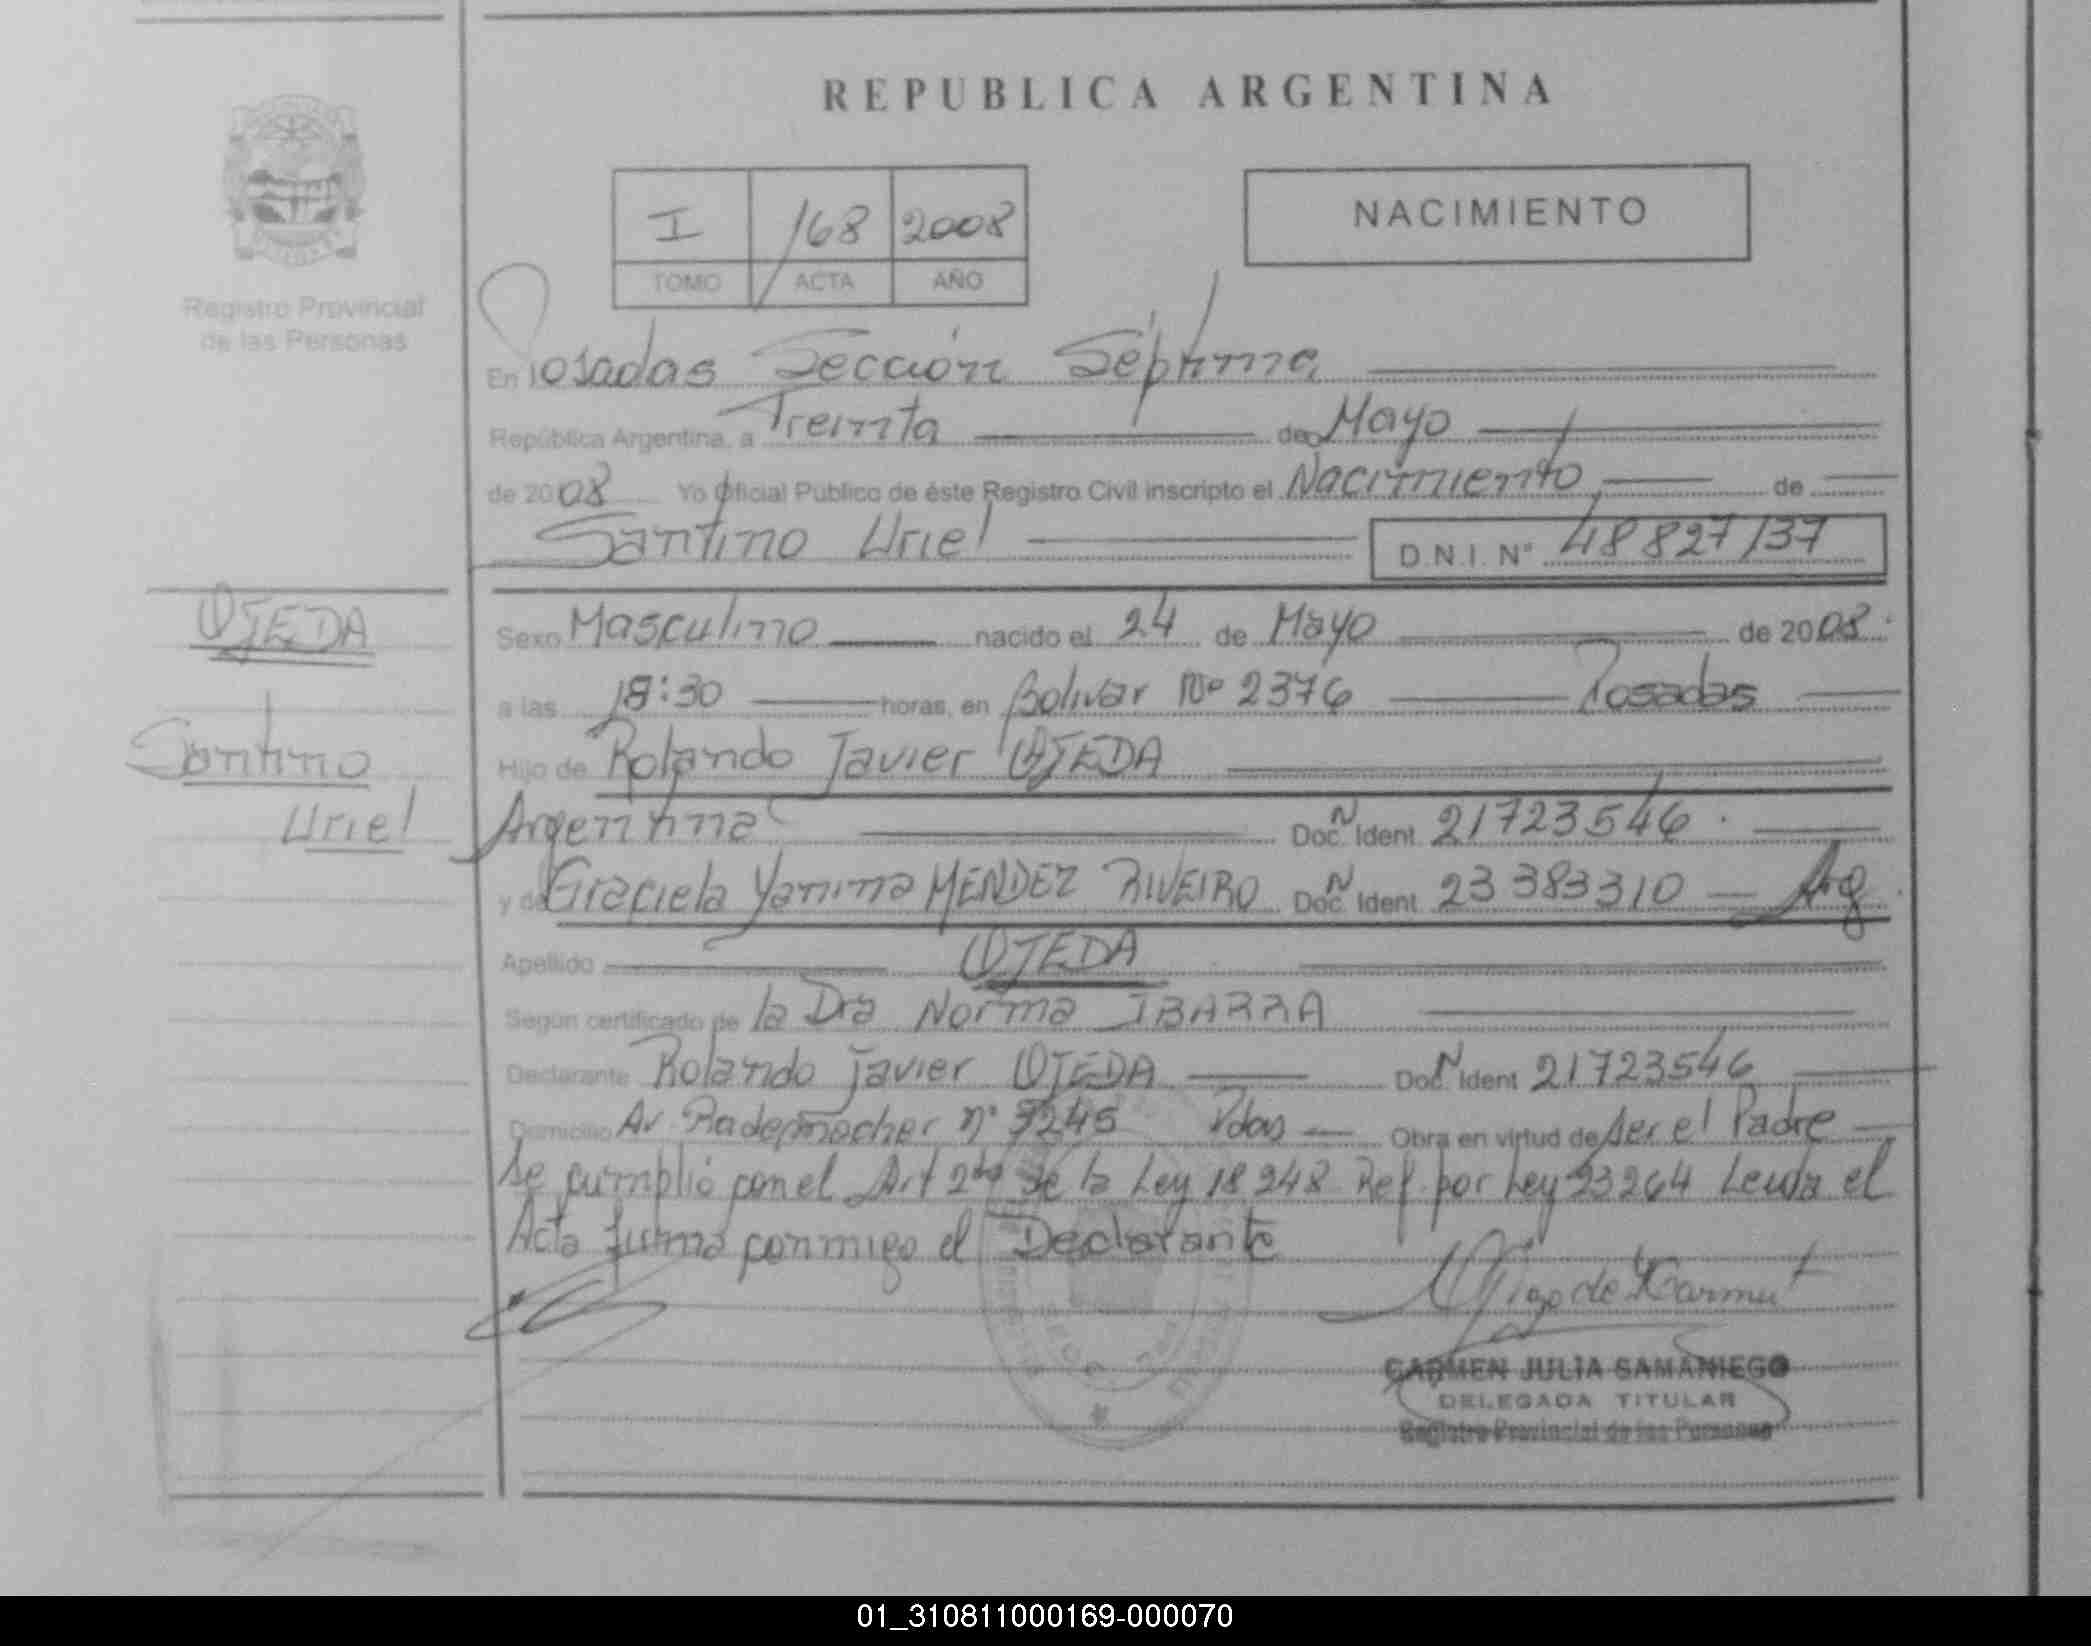 REPUBLICA ARGENTINA
I 168 2008
TOMO ACTA AÑO
NACIMIENTO
Registro Provincial
de las Personas
En Posadas Sección Séptima
República Argentina, a Treinta de Mayo
de 2008 Yo Oficial Público de éste Registro Civil inscripto el Nacimiento, de
Santino Uriel D.N.I. Nº 48827137
OJEDA
Santino
Uriel
Sexo Masculino nacido el 24 de Mayo de 2008
a las 18:30 horas, en Bolivar Nº 2376 Posadas
Hijo de Rolando Javier OJEDA
Argentina Doc. Ident. 21723546
y de Graciela Yanina MENDEZ RIVEIRO Doc. Ident. 23383310 Arg
Apellido OJEDA
Según certificado de la Dra Norma IBARRA
Declarante Rolando Javier OJEDA Doc. Ident 21723546
Domicilio Av. Rademacher nº Pdas Obra en virtud de ser el Padre
Se cumplió con el Art 2do de la Ley 18248 Ref. por Ley 23264 Leida el
Acta firma conmigo el Declarante
CARMEN JULIA SAMANIEGO
DELEGADA TITULAR
Registro Provincial de las Personas
01_310811000169-000070